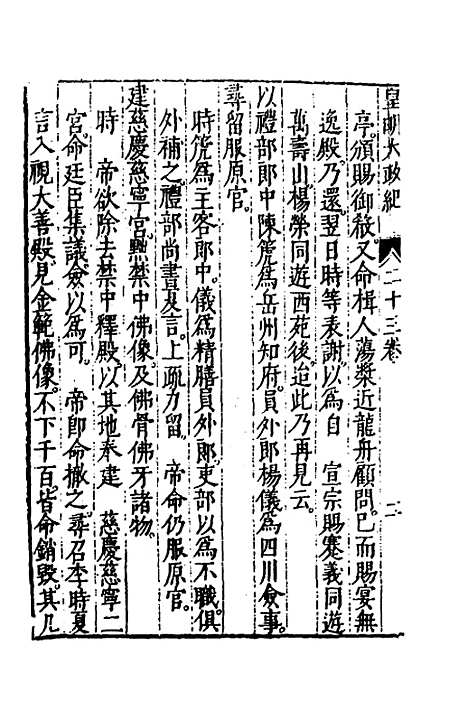 皇明大政紀 二十三卷 二
亭頒賜御殽又命楫人蕩槳近龍舟顧問已而賜宴無
逸殿乃還翌日時等表謝以為自 宣宗賜蹇義同遊
萬壽山楊榮同遊西苑後迨此乃再見云
以禮部郎中陳箎為岳州知府員外郎楊儀為四川僉事
尋留服原官
時箎為主客郎中儀為精膳員外郎吏部以為不職俱
外補之禮部尚書夏言上疏力留 帝命仍服原官
建慈慶慈寧宮㸃禁中佛像及佛骨佛牙諸物
時 帝欲除去禁中釋殿以其地奉建 慈慶慈寧二
宮命廷臣集議僉以為可 帝即命撤之尋召李時夏
言入視大善殿見金範佛像不下千百皆命銷毀其几